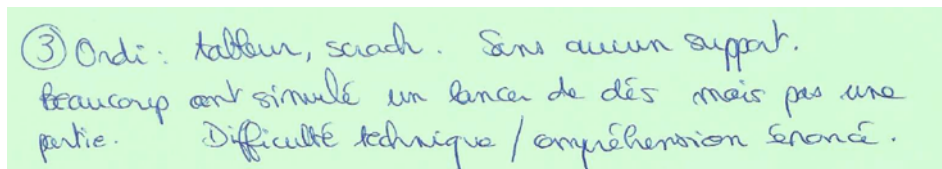 ③ Ordi : tableur, scrach. Sans aucun support.
Beaucoup ont simulé un lancer de dés mais pas une
partie. Difficulté technique / compréhension énoncé.